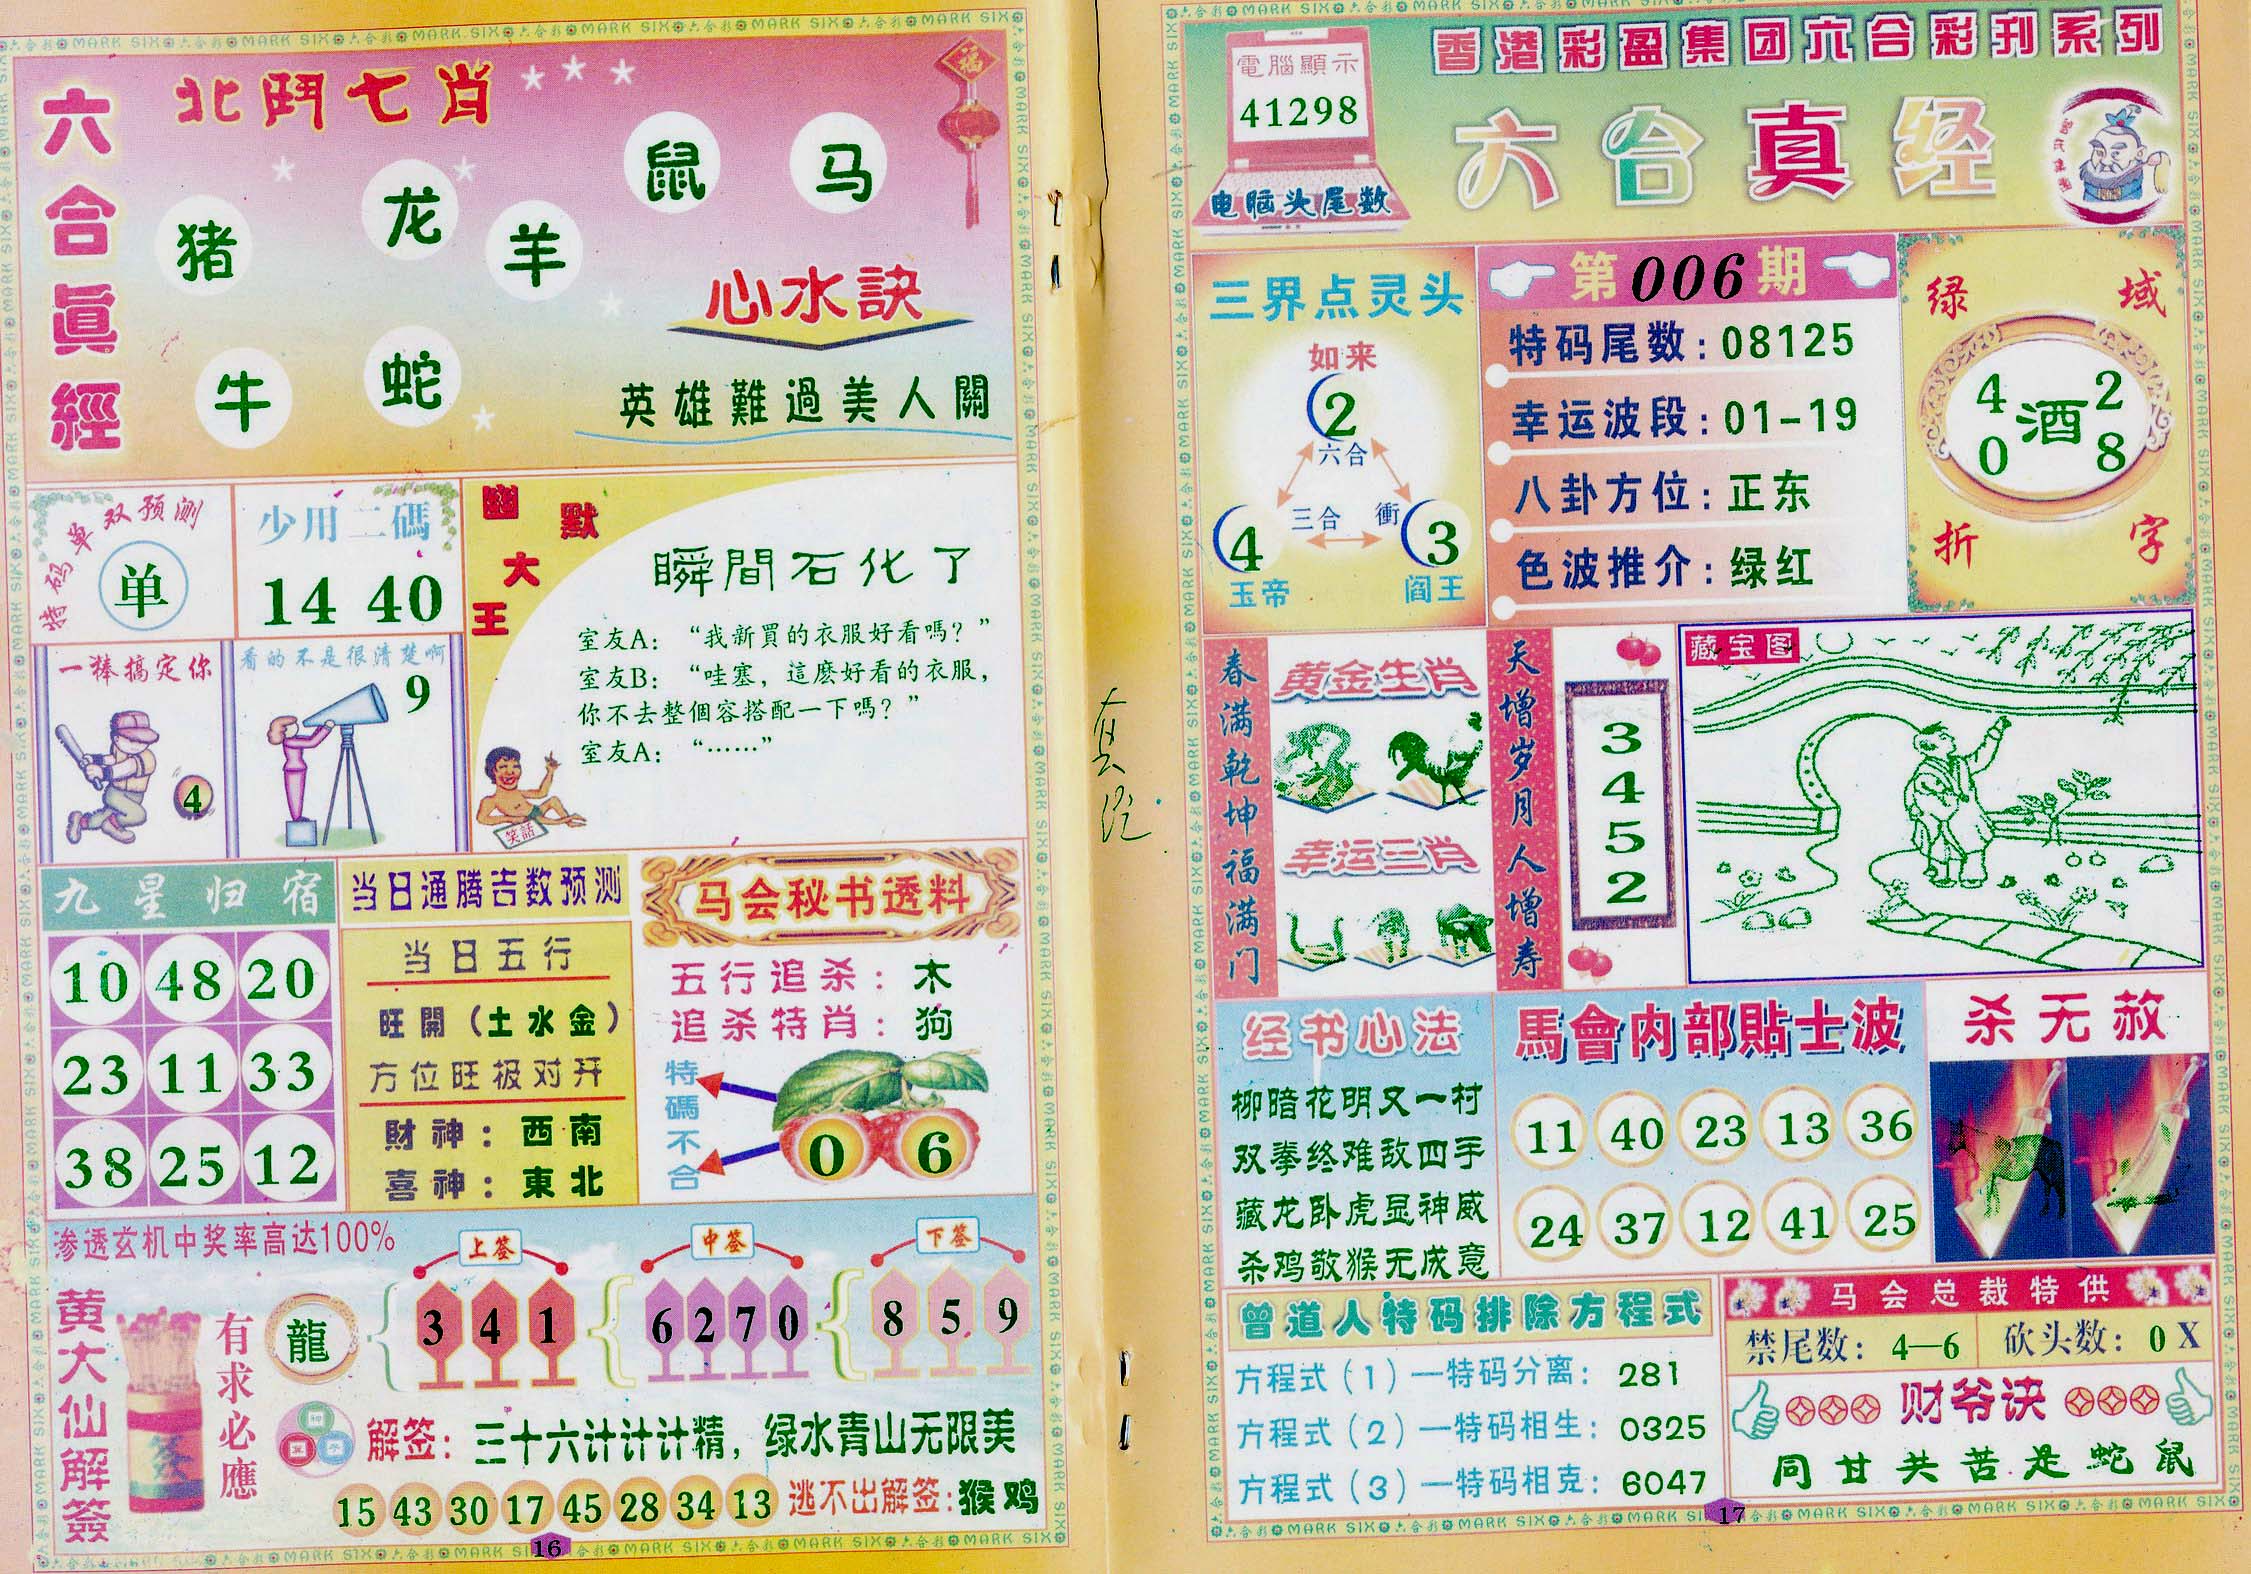 六合真經
北鬥七肖
福
猪
龙
羊
鼠
马
牛
蛇
心水訣
英雄難過美人關
特码单双预测
单
少用二碼
14 40
一棒搞定你
4
看的不是很清楚啊
9
幽默大王
瞬間石化了
室友A：“我新買的衣服好看嗎？”
室友B：“哇塞，這麼好看的衣服，
你不去整個容搭配一下嗎？”
室友A：“……”
笑話
九星归宿
10 48 20
23 11 33
38 25 12
当日通腾吉数预测
当日五行
旺開（土水金）
方位旺极对开
财神：西南
喜神：東北
马会秘书透料
五行追杀：木
追杀特肖：狗
特碼不合
0 6
渗透玄机中奖率高达100%
黄大仙解簽
有求必應
龍
上签
3 4 1
中签
6 2 7 0
下签
8 5 9
解签：三十六计计计精，绿水青山无限美
15 43 30 17 45 28 34 13 逃不出解签：猴鸡
16
電腦顯示
41298
电脑头尾数
香港彩盈集团六合彩刊系列
六合真经
三界点灵头
如来
2
六合
三合
衝
4
玉帝
3
阎王
第006期
特码尾数：08125
幸运波段：01-19
八卦方位：正东
色波推介：绿红
绿域折字
4 2
酒
0 8
春满乾坤福满门
黄金生肖
幸运三肖
天增岁月人增寿
3
4
5
2
藏宝图
经书心法
柳暗花明又一村
双拳终难敌四手
藏龙卧虎显神威
杀鸡敬猴无成意
馬會内部貼士波
11 40 23 13 36
24 37 12 41 25
杀无赦
曾道人特码排除方程式
方程式（1）—特码分离：281
方程式（2）—特码相生：0325
方程式（3）—特码相克：6047
马会总裁特供
禁尾数：4—6
砍头数：0X
财爷诀
同甘共苦是蛇鼠
17